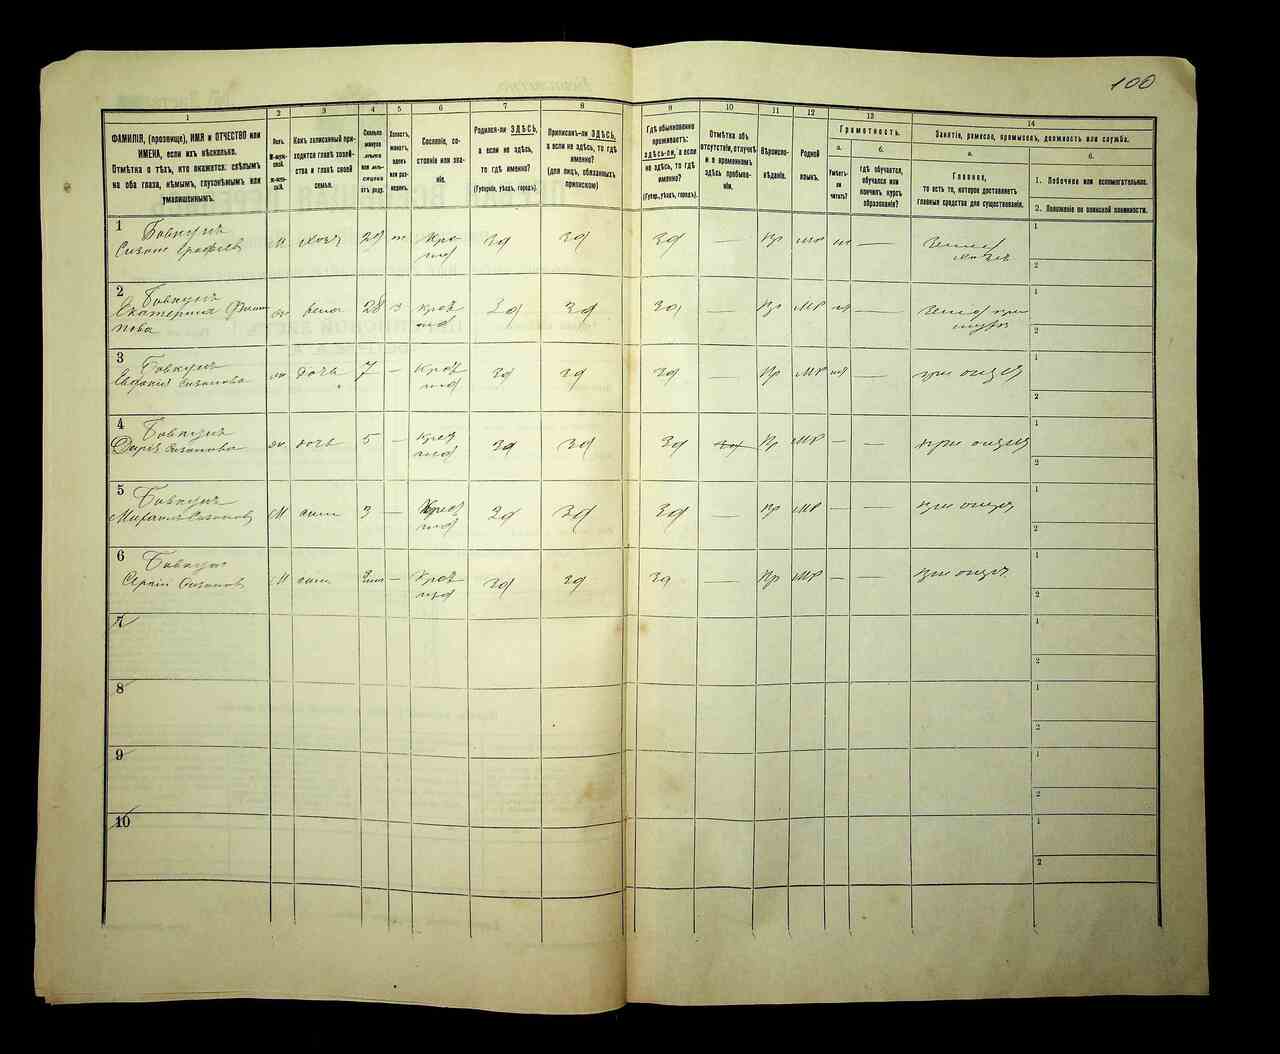 100
1
2
3
4
5
6
7
8
9
10
11
12
13
14
ФАМИЛІЯ, (прозвище), ИМЯ и ОТЧЕСТВО или
ИМЕНА, если ихъ нѣсколько.
Отмѣтка о тѣхъ, кто окажется: слѣпымъ
на оба глаза, нѣмымъ, глухонѣмымъ или
умалишеннымъ.
Полъ.
М-муж-
ской.
Ж-жен-
скій.
Какъ записанный при-
ходится главѣ хозяй-
ства и главѣ своей
семьи.
Сколько
минуло
лѣтъ
или мѣ-
сяцевъ
отъ роду.
Холостъ,
женатъ,
вдовъ
или раз-
веденъ.
Сословіе, со-
стояніе или зва-
ніе.
Родился-ли ЗДѢСЬ,
а если не здѣсь,
то гдѣ именно?
(Губернія, уѣздъ, городъ).
Приписанъ-ли ЗДѢСЬ,
а если не здѣсь, то гдѣ
именно?
(для лицъ, обязанныхъ
припискою)
Гдѣ обыкновенно
проживаетъ:
ЗДѢСЬ-ЛИ, а если
не здѣсь, то гдѣ
именно?
(Губер., уѣздъ, городъ).
Отмѣтка объ
отсутствіи, отлучкѣ
и о временномъ
здѣсь пребыва-
ніи.
Вѣроиспо-
вѣданіе.
Родной
языкъ.
Грамотность.
а.
б.
Умѣетъ-
ли
читать?
гдѣ обучается,
обучался или
кончилъ курсъ
образованія?
Занятіе, ремесло, промыселъ, должность или служба.
а.
б.
Главное,
то есть то, которое доставляетъ
главныя средства для существованія.
1. Побочное или вспомогательное.
2. Положеніе по воинской повинности.
1
Бовкунъ
М
29
зд
зд
зд
—
Пр
мр
—
1
2
2
Бовкунъ
Екатерина Филип
пова
жена
28
з
зд
зд
зд
—
Пр
МР
—
1
2
3
Бовкунъ
Евдокія Сизонова
дочь
7
—
зд
зд
зд
—
Пр
МР
—
при отцѣ
1
2
4
Бовкунъ
Дарія Сизонова
дочь
5
—
зд
зд
зд
Пр
МР
—
—
при отцѣ
1
2
5
Бовкунъ
Михаилъ Сизоновъ
М
сынъ
3
—
зд
зд
зд
—
Пр
МР
—
—
при отцѣ
1
2
6
Бовкунъ
Сергій Сизоновъ
М
сынъ
—
зд
зд
зд
—
Пр
МР
—
—
при отцѣ
1
2
7
1
2
8
1
2
9
1
2
10
1
2